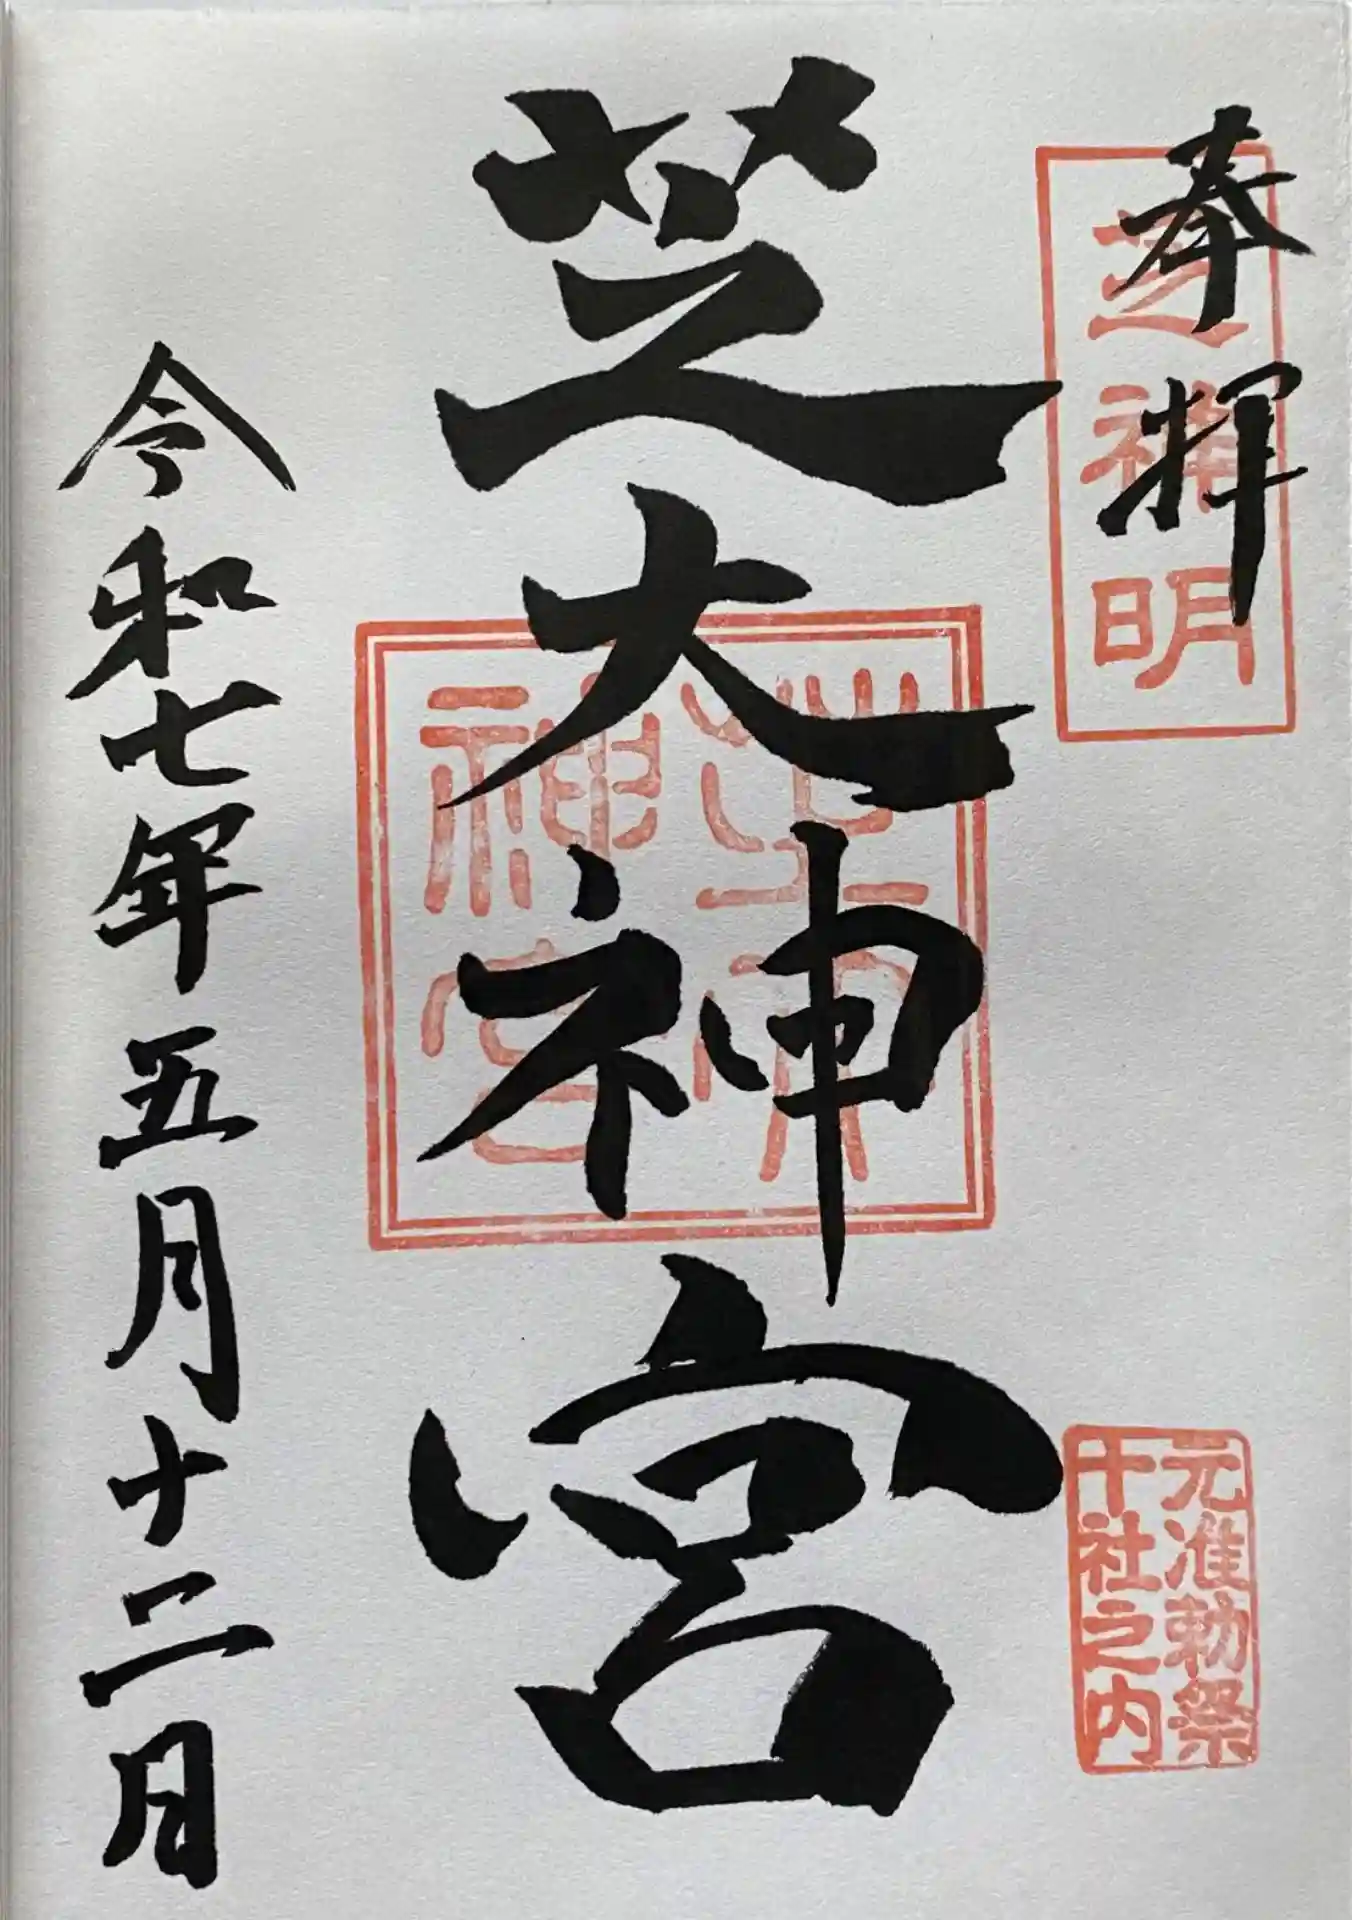 奉拝
芝神明
元准勅祭
十社之内
芝大神宮
芝大
神宮
令和七年五月十二日